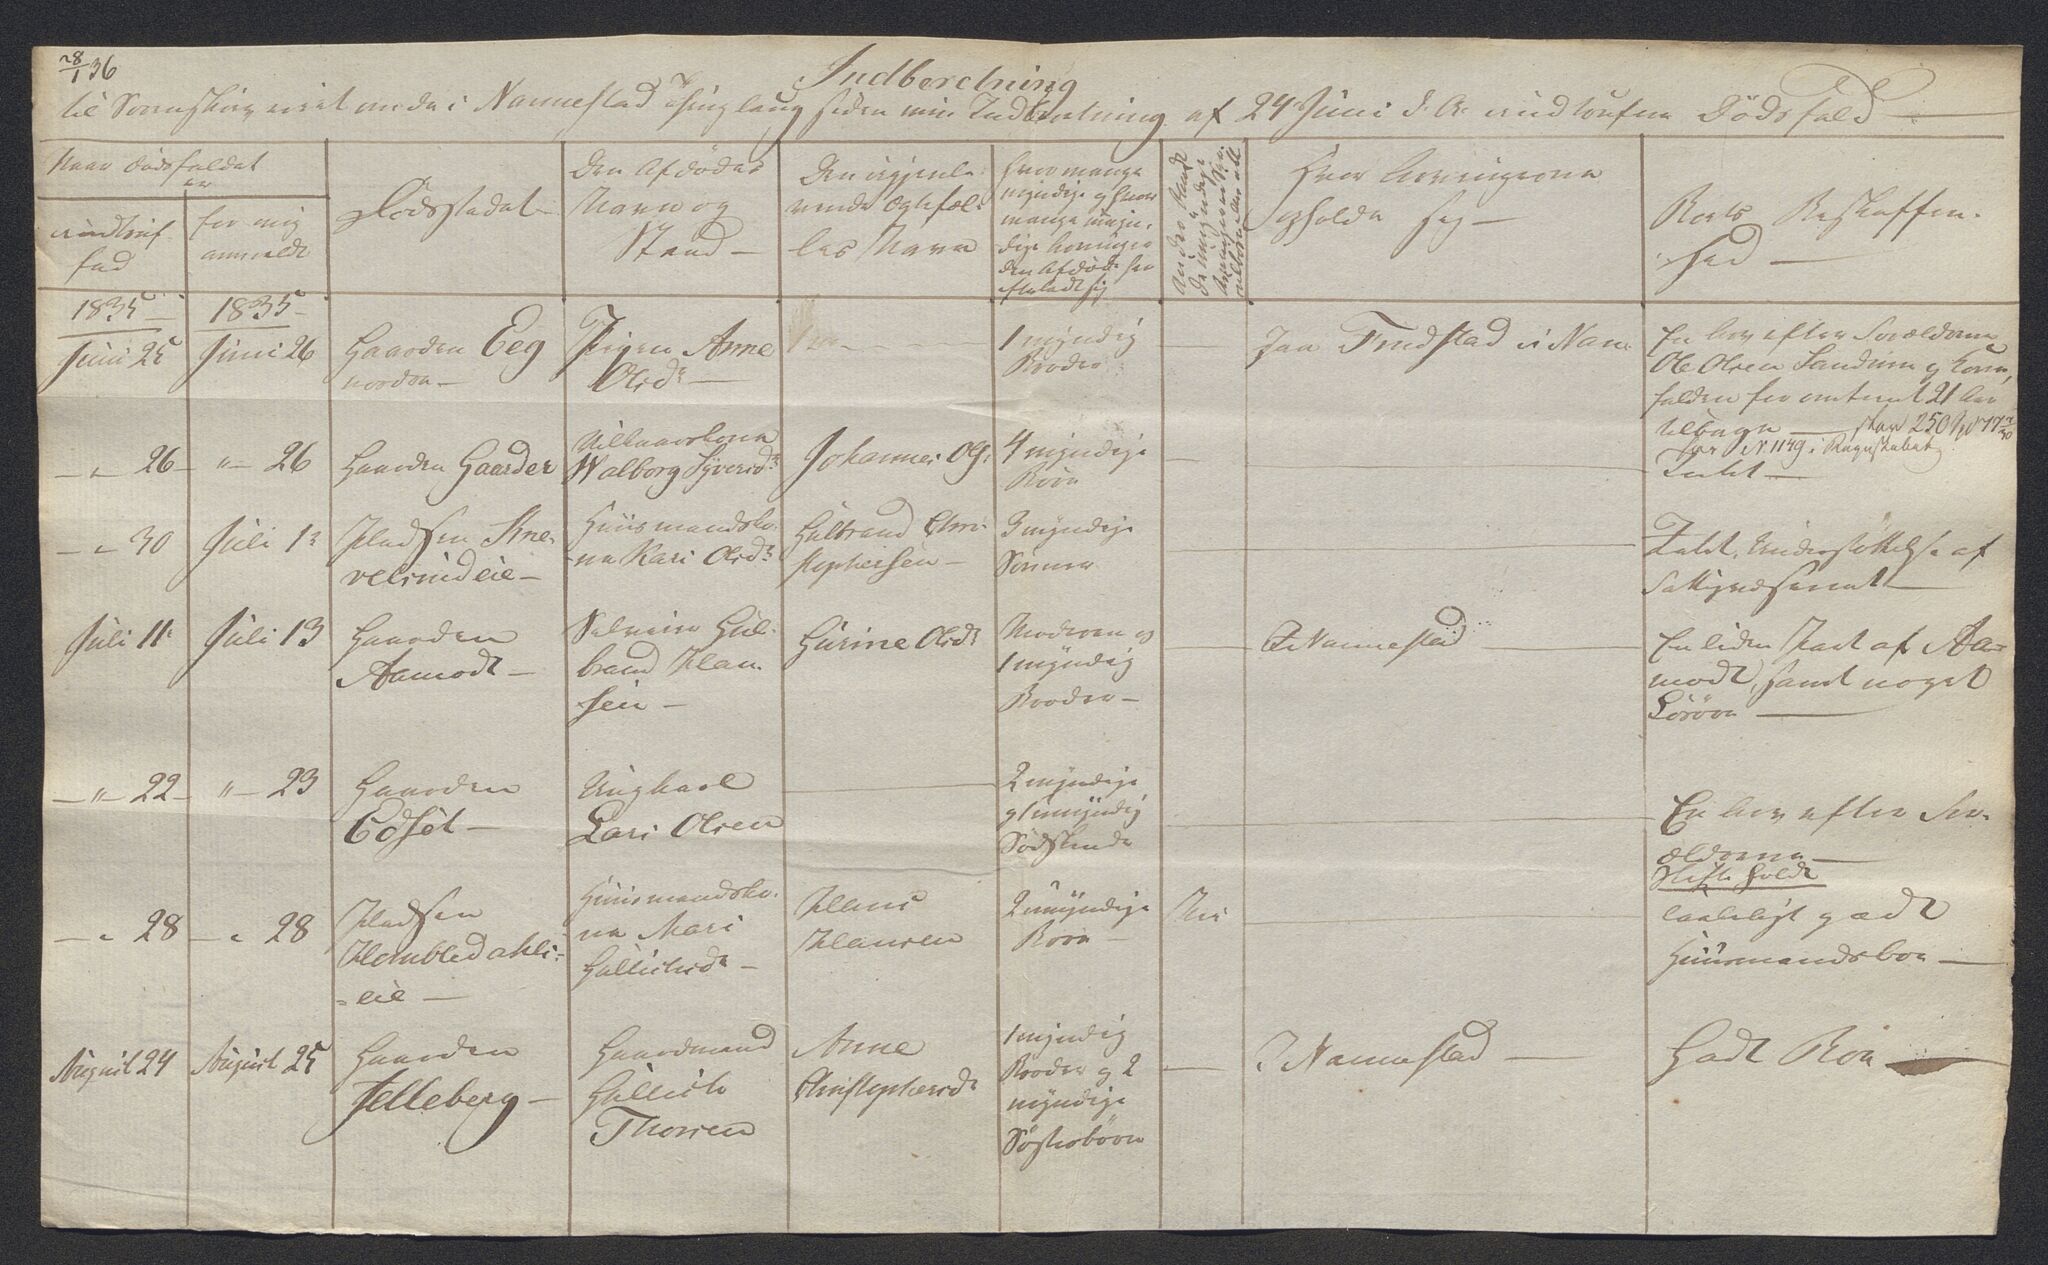 28/1 36
Indberetning
til Sorenskriveriet om de i Nannestad Thinglaug siden min Indberetning af 24 Juni d: A: indtrufne Dödsfald
Naar Dödsfaldet
er
indtruf-
fed
for mig
anmeldt
Dödsstedet
Den Afdödes
Navn og
Stand
Den igjenle-
vende Ægtefæl-
les Navn
Hvor mange
myndige og hvor
mange umyn-
dige Arvinger
den Afdöde har
efterladt sig
Hvor Arvingerne
opholde sig
Boets Beskaffen-
hed
1835
1835
Juni 25
Juni 26
Gaarden Eeg
nordre
Pigen Anne
Olsdr
1 myndig
Broder
Paa Fredstad i Nan-
En Arv efter Forældrene
Ole Olsen Sandum og Kone,
falden for omtrent 21 Aar
tilbage
No 1149 i Regnskabet
" 26
" 26
Gaarden Gaarder
Vilkaarskone
Walborg Syversdr
Johannes Ols:
4 myndige
Börn
Intet
" 30
Juli 1
Pladsen Kne-
velsrudeie
Huusmandsko-
ne Kari Olsdr
Gulbrand Chri-
stophersen
3 myndige
Sönner
Intet, Understöttelse af
Fattigvæsenet
Juli 11
Juli 13
Gaarden
Aamodt
Selveier Gul-
brand Han-
sen
Gurine Olsdr
Moderen og
1 myndig
Broder
I Nannestad
En liden Part af Aa-
modt, samt noget
Lösöre
" 22
" 23
Gaarden
Edsöt
Ungkarl
Lars Olsen
2 myndige
og 1 umyndig
Södskende
En Arv efter For-
ældrene
Skifte holdt
" 28
" 28
Pladsen
Hombledahls-
eie
Huusmandsko-
ne Mari
Gullichsdr
Hans
Hansen
2 umyndige
Börn
taaleligt godt
Huusmandsboe
August 24
August 25
Gaarden
Jelleberg
Gaardmand
Gullich
Thorsen
Anne
Christophersdr
1 myndig
Broder og 2
myndige
Sösterbörn
I Nannestad
Godt Boe